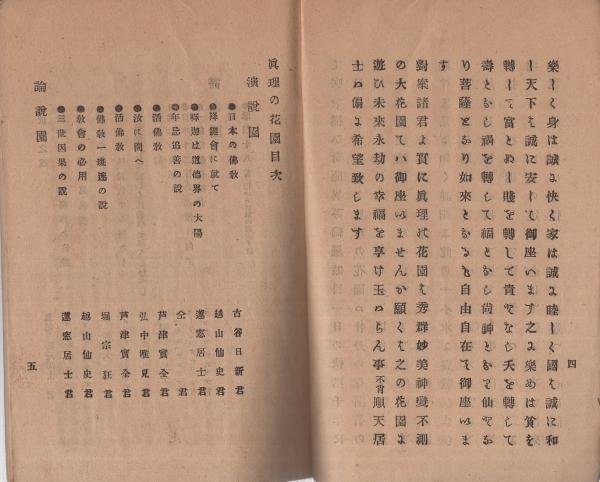 樂しく身は誠に快く家は誠に睦しく國も誠に和
し天下も誠に安して御座ひます之に樂めは貧を
轉して富とあし賤を轉して貴となし夭を轉して
壽とあし禍を轉して福とあし尙神とあり仙とあ
り菩薩とあり如來とあると自由自在て御座ひま
す
對案諸君よ實に眞理の花園も秀群妙美神變不測
の大花園てハ御座ひませんか願くも之の花園に
遊ひ未來永劫の幸福を享け玉ひらん事不肖順天居
士ね偏に希望致します
四
眞理の花園目次
演說園
●日本の佛敎 古谷日新君
●降誕會に就て 越山仙史君
●釋迦は道德界の大陽 蘆窓居士君
●年忌追善の說 仝 君
●活佛敎 芦津實全君
●汝に問へ 弘中唯見君
●活佛敎 芦津實全君
●佛敎一斑進の說 堀宗狂君
●敎會の必用 越山仙史君
●三世因果の說 蘆窓居士君
論說園
五